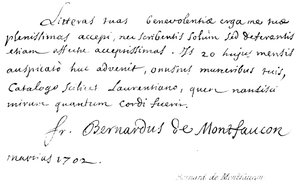 Litteras tuas benevolentiæ erga me tuæ
plenissimas accepi, nec scribentis solùm sed deferentis
etiam officio acceptissimas. Is 20 hujus mensis
auspicatò huc advenit, onustus muneribus tuis,
Catalogo scilicet Laurentiano, quem nancisci
mirum quantum cordi fuerit.
fr. Bernardus de Montfaucon
martias 1702.
Bernard de Montfaucon